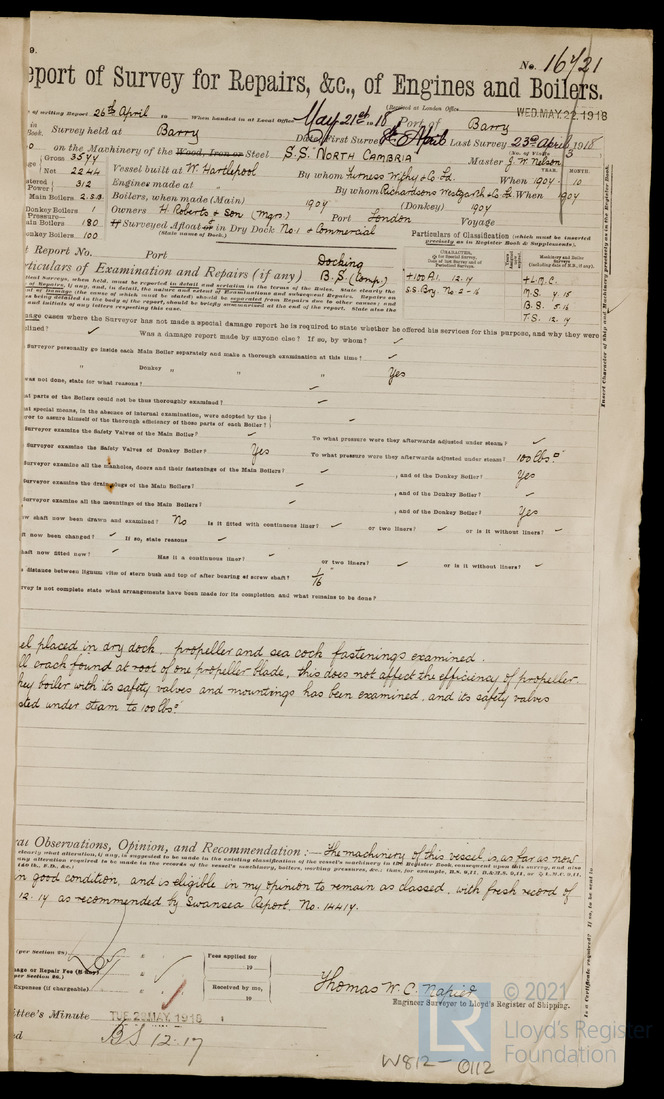 9.
No. 16421
eport of Survey for Repairs, &c., of Engines and Boilers.
(Received at London Office
WED. MAY. 22. 1918
of writing Report 26th April 19 When handed in at Local Office May 21st 1918 Port of Barry
Survey held at Barry Date, First Survey 8th April Last Survey 23rd April 1918
(No. of Visits 3
on the Machinery of the Wood, Iron or Steel S.S. "NORTH CAMBRIA" Master J. W. Nelson
Gross 3544
Net 2244
Vessel built at W. Hartlepool By whom Furness Withy & Co Ld. When 1904 - 10
YEAR. MONTH.
312 Engines made at " By whom Richardsons Westgarth & Co Ld When 1904
Main Boilers 2.S.B. Boilers, when made (Main) 1904 (Donkey) 1904
Donkey Boilers 1 Owners H. Roberts & Son (Mgrs) Port London Voyage
Pressure—
ain Boilers 180 If Surveyed Afloat or in Dry Dock No. 1 & Commercial
(State name of Dock.)
onkey Boilers 100
Particulars of Classification (which must be inserted precisely as in Register Book & Supplements).
t Report No. Port
rticulars of Examination and Repairs (if any) Docking B.S. (Comp.)
+100A1. 12.17
S.S. Bry. No 2 - 16
+L.M.C.
M.S. 4.15
B.S. 5.16
T.S. 12.17
Insert Character of Ship and Machinery precisely as in the Register Book.
age cases where the Surveyor has not made a special damage report he is required to state whether he offered his services for this purpose, and why they were
lined? ✓ Was a damage report made by anyone else? If so, by whom? ✓
Surveyor personally go inside each Main Boiler separately and make a thorough examination at this time? ✓
" Donkey " " " Yes
was not done, state for what reasons? ✓
at parts of the Boilers could not be thoroughly examined? ✓
at special means, in the absence of internal examination, were adopted by the
yor to assure himself of the thorough efficiency of those parts of each Boiler? ✓
Surveyor examine the Safety Valves of the Main Boiler? ✓ To what pressure were they afterwards adjusted under steam? ✓
Surveyor examine the Safety Valves of Donkey Boiler? Yes To what pressure were they afterwards adjusted under steam? 100 lbs.□"
Surveyor examine all the manholes, doors and their fastenings of the Main Boilers? ✓ , and of the Donkey Boiler? Yes
Surveyor examine the drain plugs of the Main Boilers? ✓ , and of the Donkey Boiler? ✓
Surveyor examine all the mountings of the Main Boilers? ✓ , and of the Donkey Boiler? Yes
w shaft now been drawn and examined? No Is it fitted with continuous liner? ✓ or two liners? ✓ or is it without liners? ✓
ft now been changed? ✓ If so, state reasons ✓
haft now fitted new? ✓ Has it a continuous liner? ✓ or two liners? ✓ or is it without liners? ✓
distance between lignum vitæ of stern bush and top of after bearing of screw shaft? 1/16"
rvey is not complete state what arrangements have been made for its completion and what remains to be done?
el placed in dry dock. propeller and sea cock fastenings examined.
ll crack found at root of one propeller blade, this does not affect the efficiency of propeller.
key boiler with its safety valves and mountings has been examined, and its safety valves
sted under steam to 100 lbs.□"
ral Observations, Opinion, and Recommendation:— The machinery of this vessel is, as far as now
n good condition, and is eligible in my opinion to remain as classed, with fresh record of
12.17 as recommended by Swansea Report. No. 14414.
(per Section 28) £
age or Repair Fee (if any)
per Section 28.) £
Expenses (if chargeable) £
Fees applied for
19
Received by me,
19
Thomas W. C. Napier
Engineer Surveyor to Lloyd's Register of Shipping.
ttee's Minute TUE. 28 MAY. 1918
BS 12.17
Is a Certificate required? If so, to be sent to
© 2021
LR
Lloyd's Register
Foundation
W812-0112